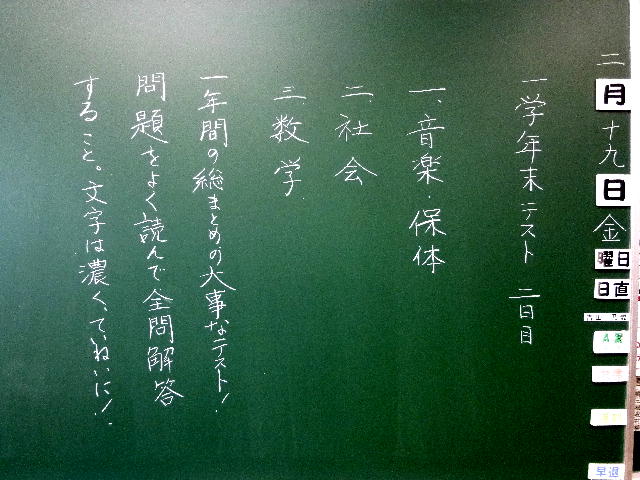 二月十九日金曜日
日直
早退
一学年末テスト 二日目
一、音楽・保体
二、社会
三、数学
一年間の総まとめの大事なテスト!
問題をよく読んで全問解答
すること。文字は濃く、ていねいに!!